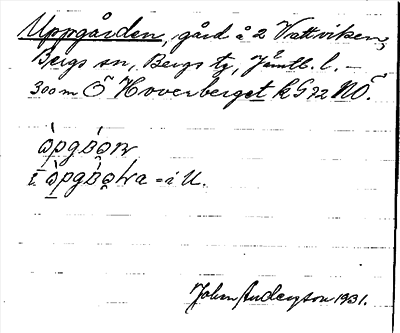 Uppgården, gård å 2 Vattviken,
Bergs sn, Bergs tg, Jämtl. l. –
300 m Ö Hoverberget kG 72 NÖ.
i = i U.
John Anderson 1931.